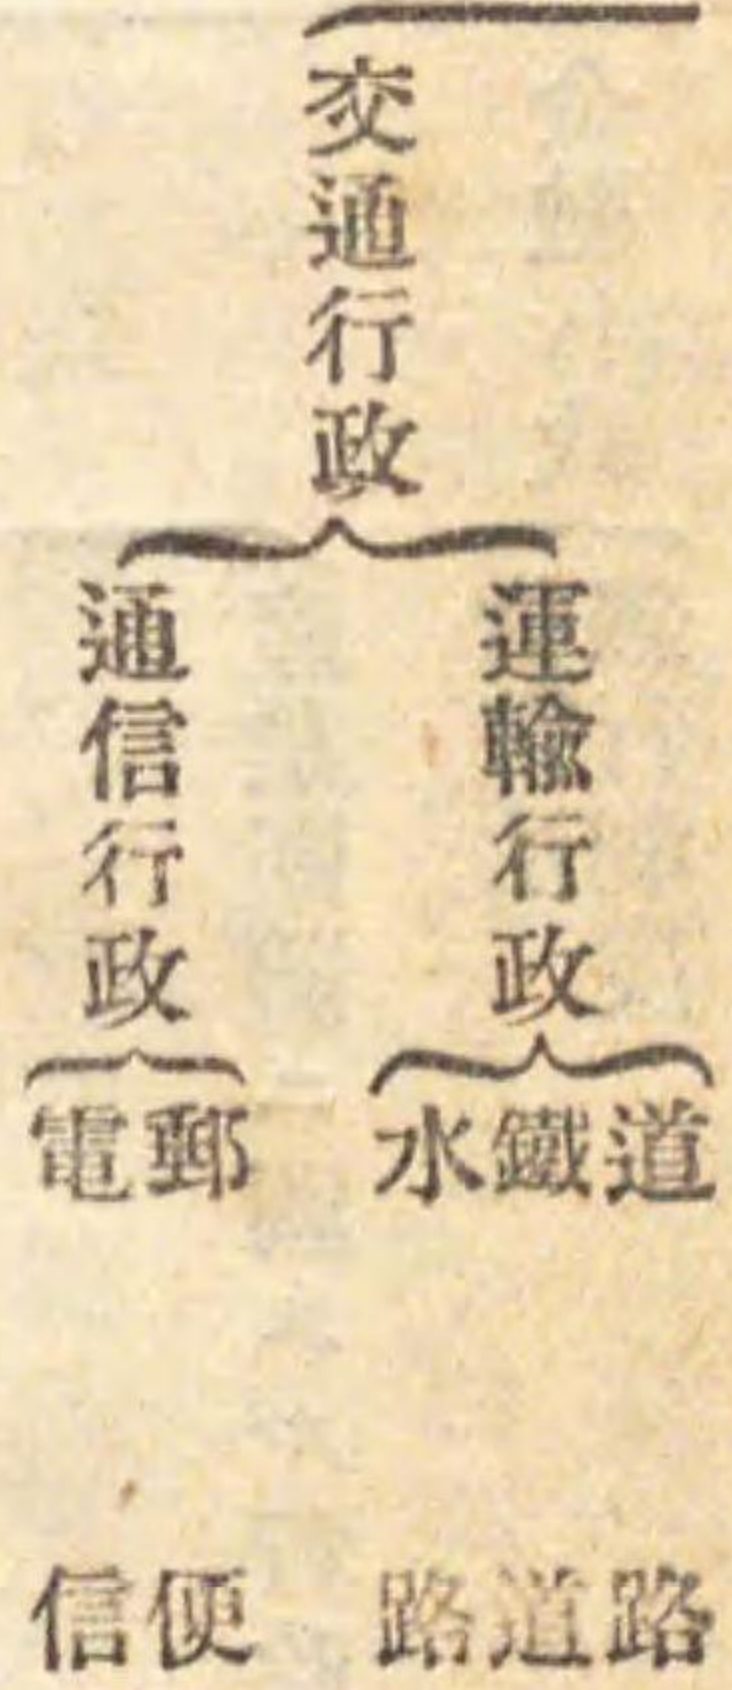 交通行政
運輸行政
道路
鐵道
水路
通信行政
郵便
電信